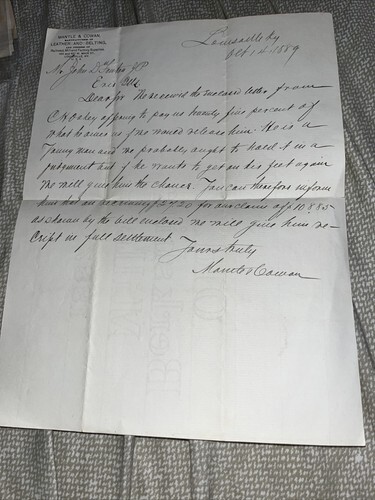 MANTLE & COWAN,
LEATHER AND BELTING,
Louisville Ky
Oct 14 1889
Mr John D
Dear Sir We received the enclosed letter from
offering to pay us twenty five percent of
what he owes us if we would release him. He is a
Young man and we probably ought to hold it in a
judgment but if he wants to get on his feet again
we will give him the chance. You can therefore inform
him that on receiving for our claim of
as shown by the bill enclosed we will give him re-
ceipt in full settlement.
Yours truly
Mantle & Cowan